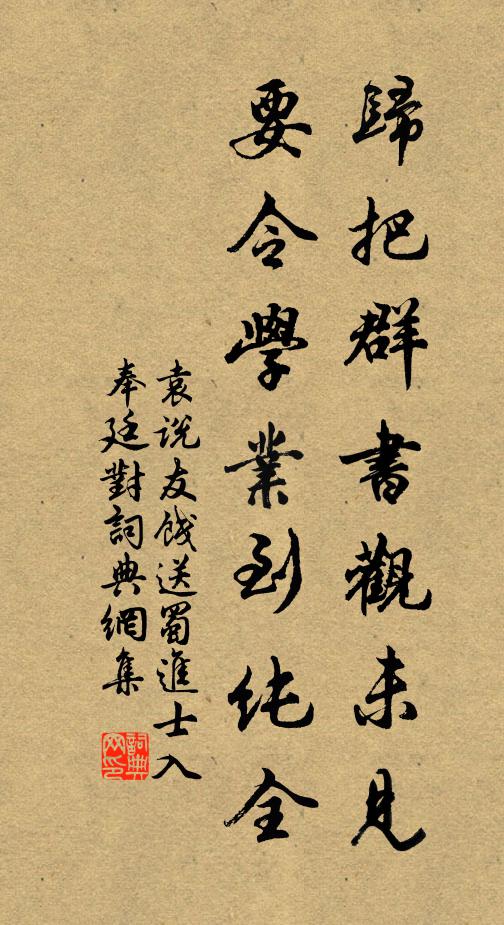 歸把群書觀未見
要令學業到純全
袁說友餞送蜀進士入
奉廷對詞典網集
詞典網印